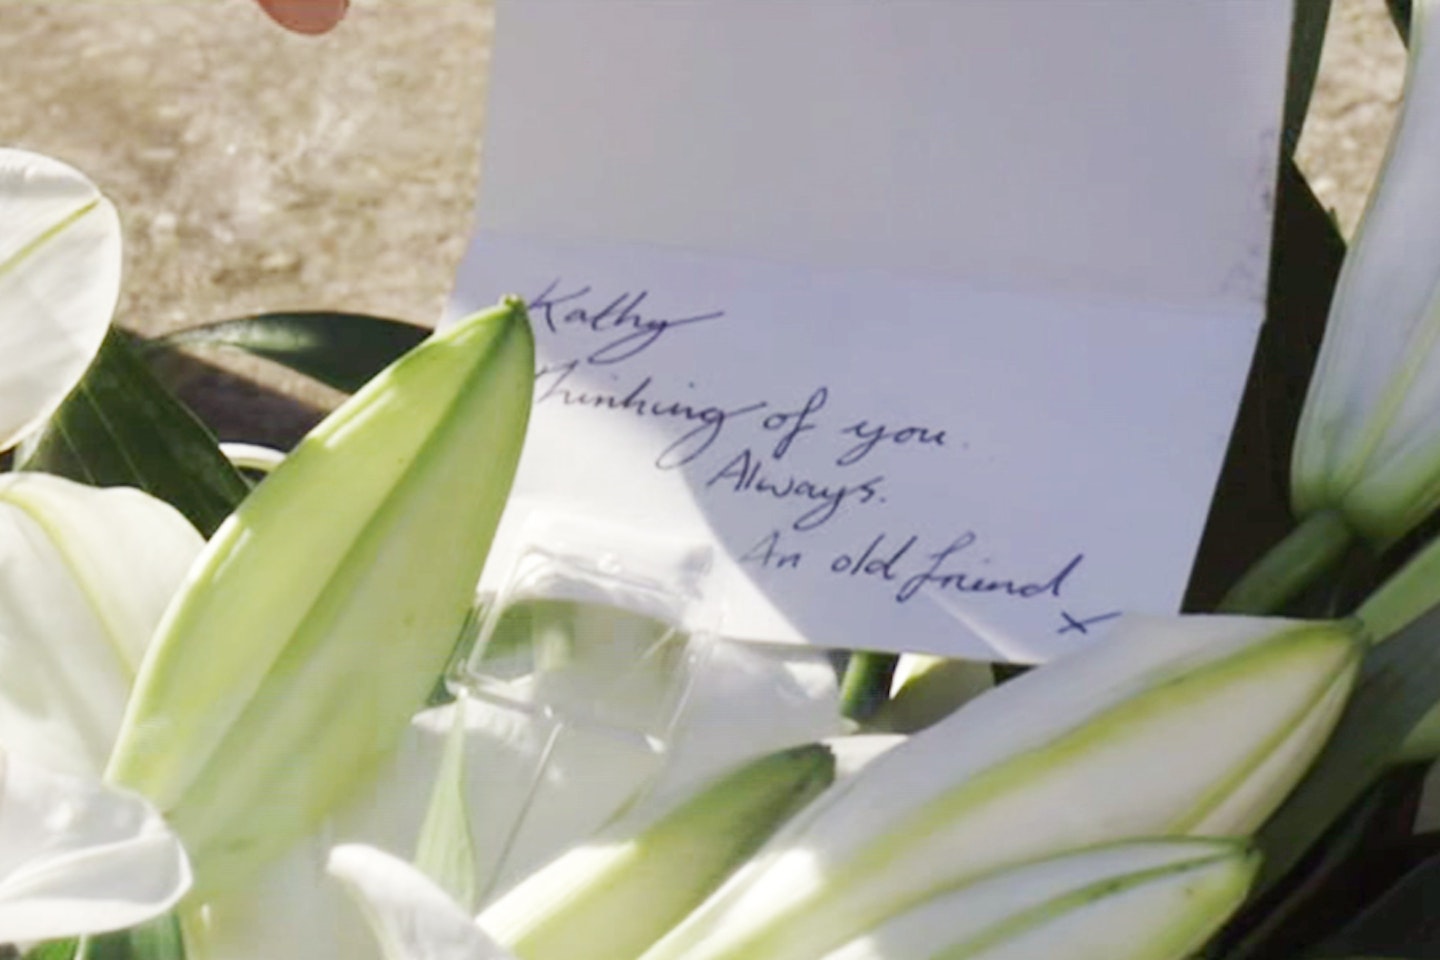 Kathy
Thinking of you.
Always.
An old friend
x